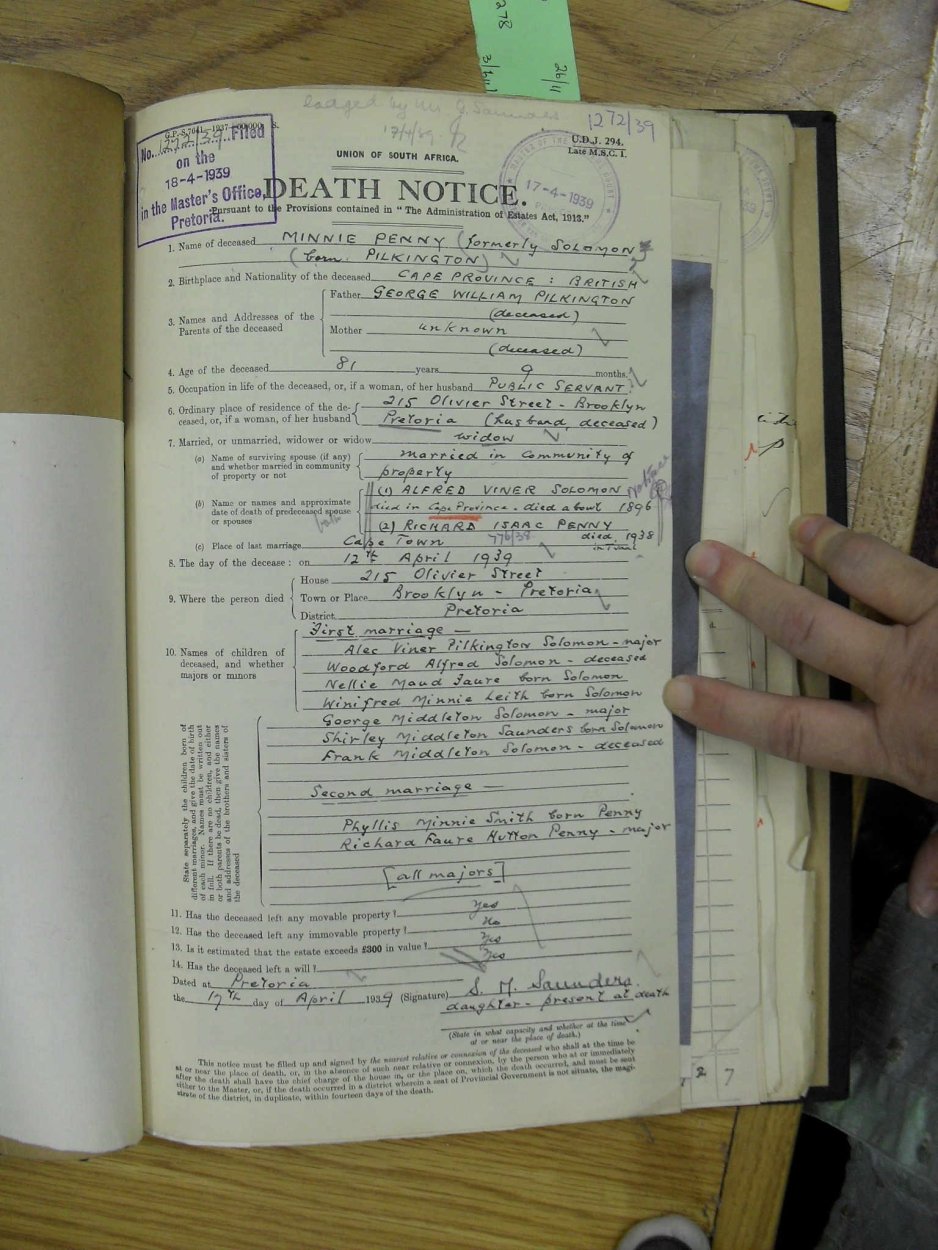 278
26/11
3/6111
lodged by Mr G. Saunders
17/4/39
1272/39
G.P.-S.7641-1937- S.
U.D.J. 294.
Late M.S.C. 1.
No. 1272/39 Filed
on the
18-4-1939
in the Master's Office,
Pretoria.
17-4-1939
UNION OF SOUTH AFRICA.
DEATH NOTICE.
Pursuant to the Provisions contained in "The Administration of Estates Act, 1913."
1. Name of deceased MINNIE PENNY (formerly SOLOMON)
(born PILKINGTON)
2. Birthplace and Nationality of the deceased CAPE PROVINCE : BRITISH
3. Names and Addresses of the Parents of the deceased
Father GEORGE WILLIAM PILKINGTON
(deceased)
Mother unknown
(deceased)
4. Age of the deceased 81 years 9 months.
5. Occupation in life of the deceased, or, if a woman, of her husband PUBLIC SERVANT
6. Ordinary place of residence of the de- 215 Olivier Street - Brooklyn
ceased, or, if a woman, of her husband Pretoria (husband deceased)
7. Married, or unmarried, widower or widow widow
(a) Name of surviving spouse (if any) married in community of
and whether married in community property
of property or not
(b) Name or names and approximate (1) ALFRED VINER SOLOMON
date of death of predeceased spouse died in Cape Province - died about 1896
or spouses (2) RICHARD ISAAC PENNY
died 1938
(c) Place of last marriage Cape Town 776/38 in Tvaal
8. The day of the decease : on 12th April 1939
9. Where the person died
House 215 Olivier Street
Town or Place Brooklyn - Pretoria
District Pretoria
10. Names of children of deceased, and whether majors or minors
First marriage —
Alec Viner Pilkington Solomon - major
Woodford Alfred Solomon - deceased
Nellie Maud Faure born Solomon
Winifred Minnie Leith born Solomon
George Middleton Solomon - major
Shirley Middleton Saunders born Solomon
Frank Middleton Solomon - deceased
State separately the children born of
different marriages, and give the date of birth
of each minor. Names must be written out
in full. If there are no children, and either
or both parents be dead, then give the names
and addresses of the brothers and sisters of
the deceased
Second marriage —
Phyllis Minnie Smith born Penny
Richard Faure Hutton Penny - major
[all majors]
11. Has the deceased left any movable property? Yes
12. Has the deceased left any immovable property? No
13. Is it estimated that the estate exceeds £300 in value? Yes
14. Has the deceased left a will? Yes
Dated at Pretoria
the 17th day of April 1939 (Signature) S. M. Saunders
daughter - present at death
(State in what capacity and whether at the time
at or near the place of death.)
This notice must be filled up and signed by the nearest relative or connexion of the deceased who shall at the time be
at or near the place of death, or, in the absence of such near relative or connexion, by the person who at or immediately
after the death shall have the chief charge of the house in, or the place on, which the death occurred, and must be sent
either to the Master, or, if the death occurred in a district wherein a seat of Provincial Government is not situate, the magi-
strate of the district, in duplicate, within fourteen days of the death.
2 7